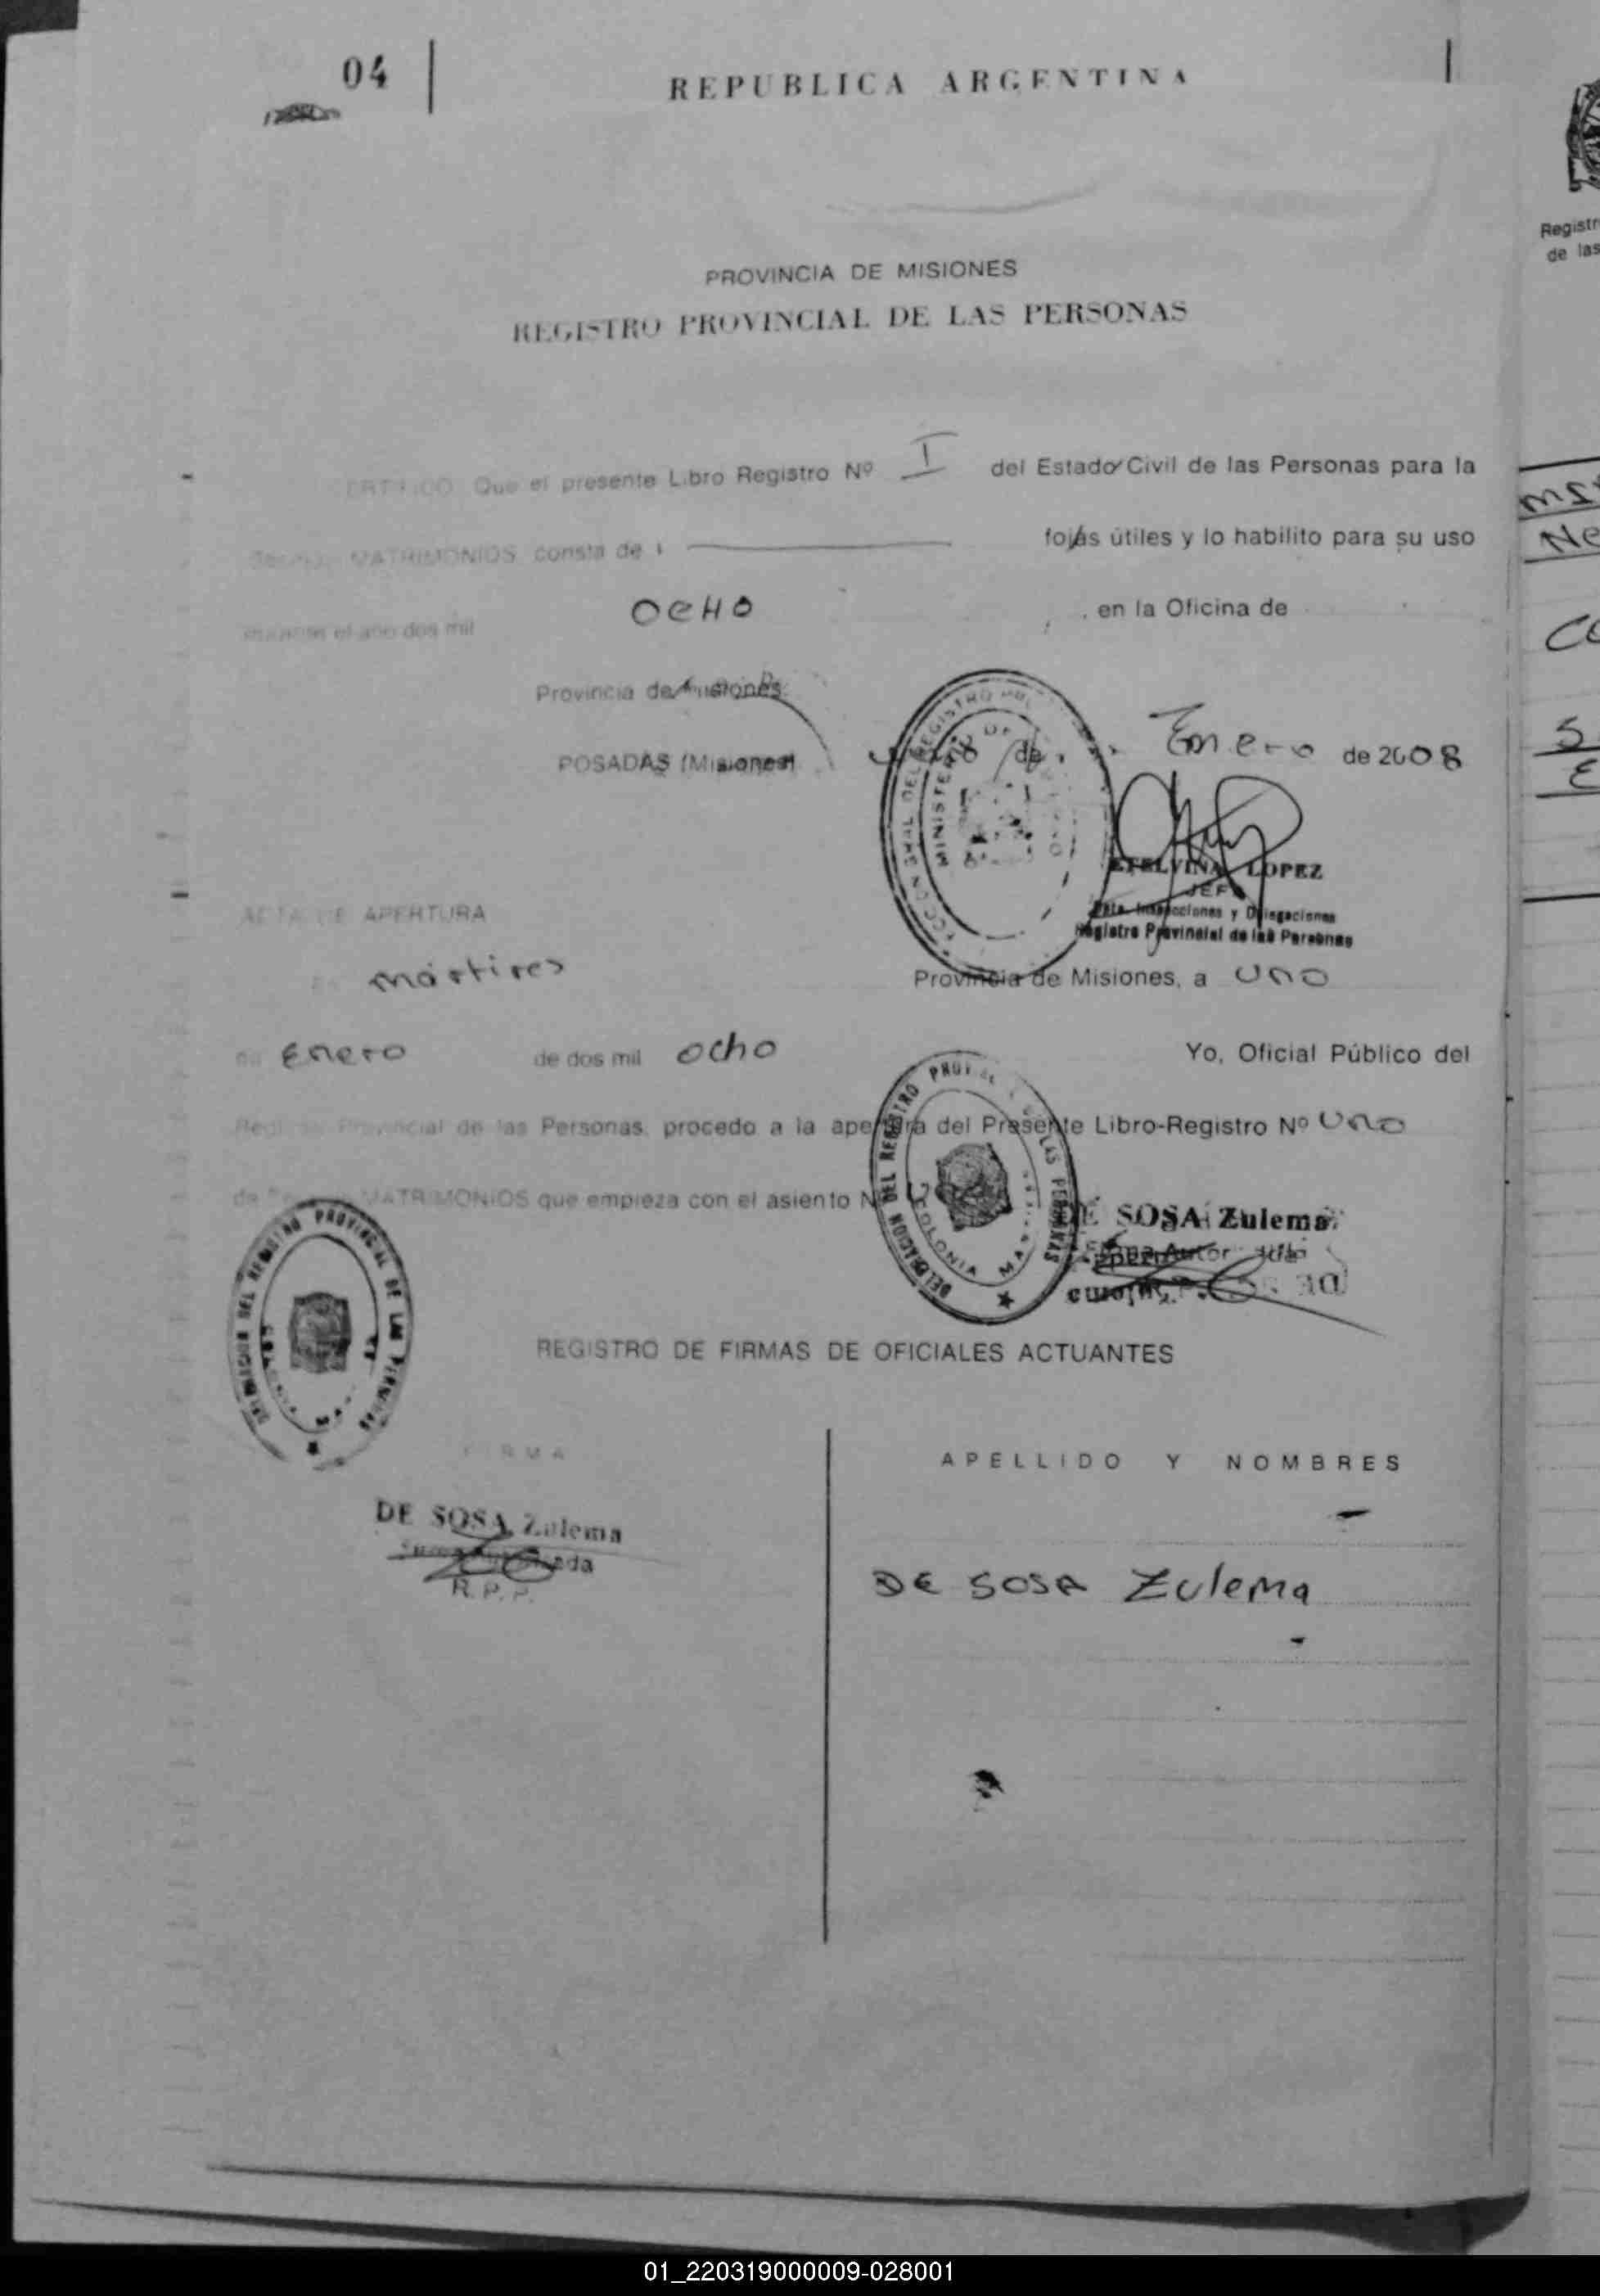 04
REPUBLICA ARGENTINA
PROVINCIA DE MISIONES
REGISTRO PROVINCIAL DE LAS PERSONAS
Registr
de las
CERTIFICO Que el presente Libro Registro Nº I del Estado Civil de las Personas para la
MATRIMONIOS consta de fojas útiles y lo habilito para su uso
durante el año dos mil OCHO en la Oficina de
Provincia de Misiones
POSADAS (Misiones) de Enero de 2008
ETELVINA LOPEZ
JEFE
Dpto. Inspecciones y Delegaciones
Registro Provincial de las Personas
ACTA DE APERTURA
En Mártires Provincia de Misiones, a uno
de Enero de dos mil ocho Yo, Oficial Público del
Registro Provincial de las Personas, procedo a la apertura del Presente Libro-Registro Nº uno
MATRIMONIOS que empieza con el asiento
DELEGACION DEL REGISTRO PROVINCIAL DE LAS PERSONAS
COLONIA
DE SOSA Zulema
DELEGACION DEL REGISTRO PROVINCIAL DE LAS PERSONAS
REGISTRO DE FIRMAS DE OFICIALES ACTUANTES
FIRMA
APELLIDO Y NOMBRES
DE SOSA Zulema
R.P.P.
DE SOSA Zulema
01_220319000009-028001